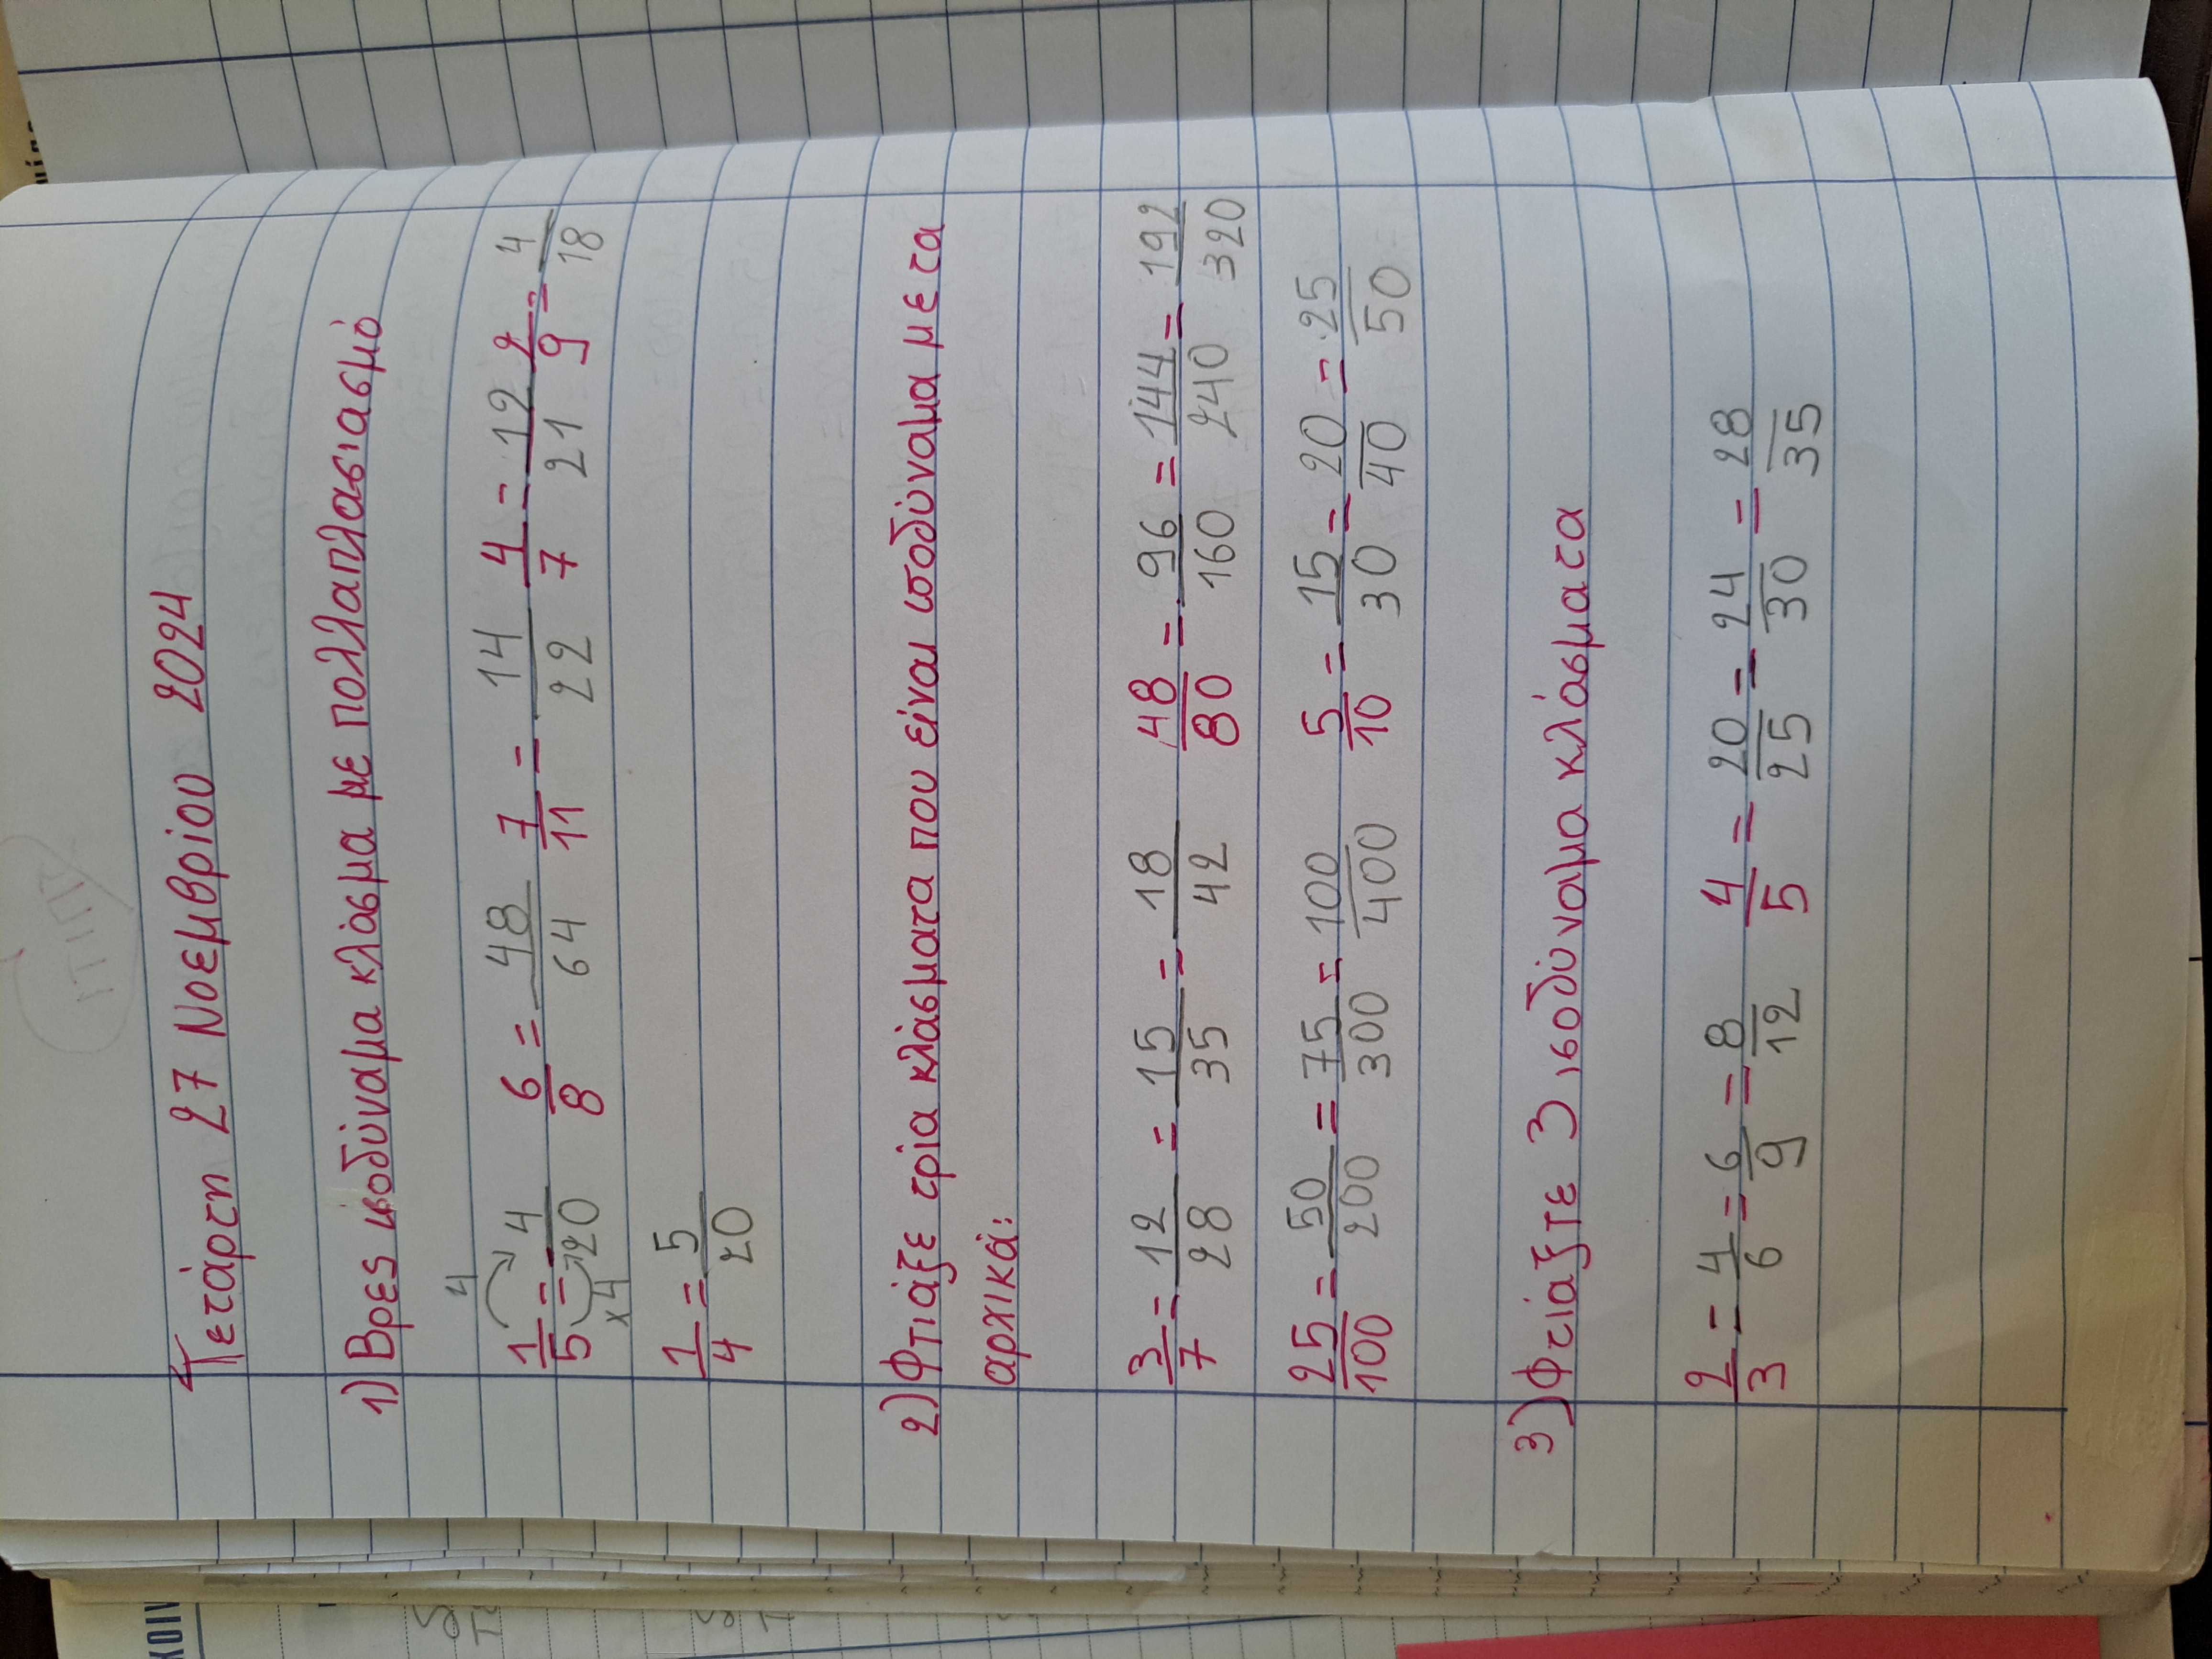 ΣΠΙΤΙ
Τετάρτη 27 Νοεμβρίου 2024
1) Βρες ισοδύναμα κλάσμα με πολλαπλασιασμό
4
1/5 = 4/20 6/8 = 48/64 7/11 = 14/22 4/7 = 12/21 2/9 = 4/18
x4
1/4 = 5/20
2) Φτιάξε τρία κλάσματα που είναι ισοδύναμα με τα
αρχικά:
3/7 = 12/28 = 15/35 = 18/42 48/80 = 96/160 = 144/240 = 192/320
25/100 = 50/200 = 75/300 = 100/400 5/10 = 15/30 = 20/40 = 25/50
3) Φτιάξτε 3 ισοδύναμα κλάσματα
2/3 = 4/6 = 6/9 = 8/12 4/5 = 20/25 = 24/30 = 28/35